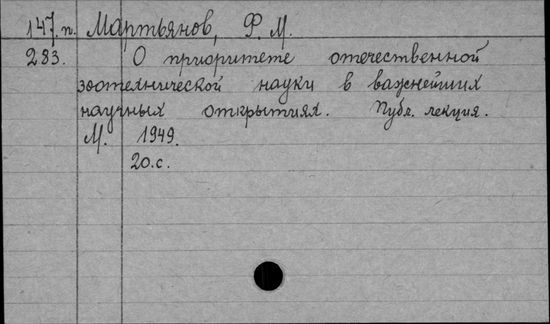 147.п. Мартьянов, Ф. М.
283. О приоритете отечественной
зоотехнической науки в важнейших
научных открытиях. Публ. лекция.
М. 1949.
20.с.